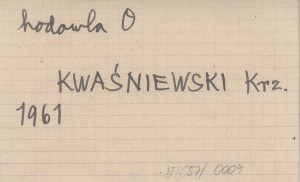 hodowla O
KWAŚNIEWSKI Krz.
1961